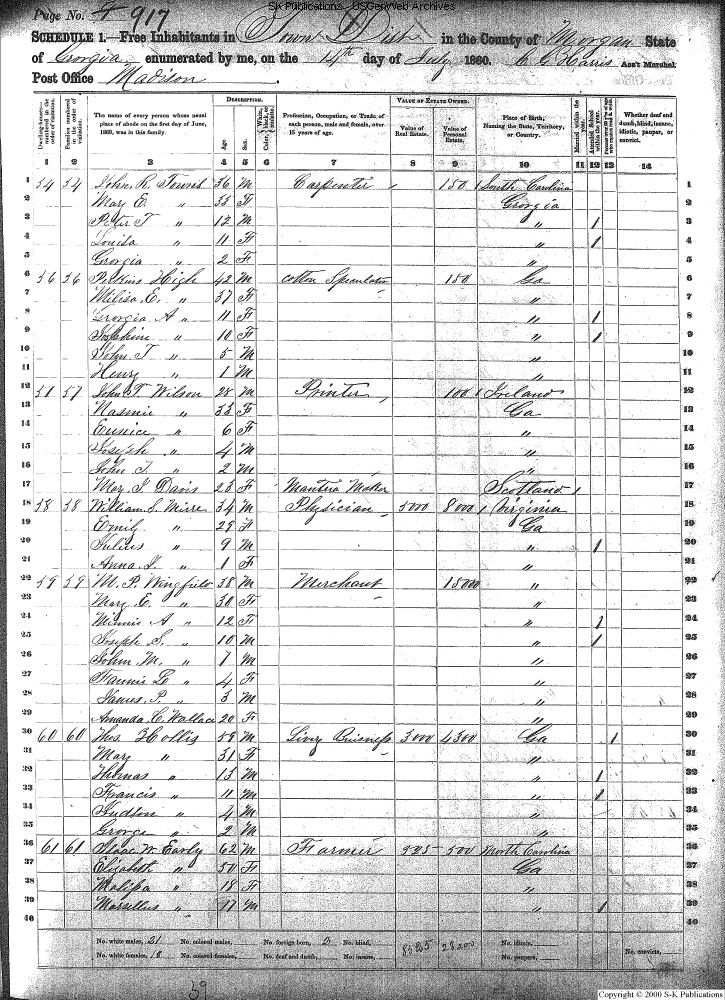 S-K Publications - USGenWeb Archives
Page No. 4 917
SCHEDULE 1.—Free Inhabitants in Town Dist in the County of Morgan State
of Georgia enumerated by me, on the 14th day of July 1860. C C Harris Ass't Marshal.
Post Office Madison.
Dwelling-houses— numbered in the order of visitation.
Families numbered in the order of visitation.
The name of every person whose usual place of abode on the first day of June, 1860, was in this family.
DESCRIPTION.
Age.
Sex.
Color, White, black, or mulatto.
Profession, Occupation, or Trade of each person, male and female, over 15 years of age.
VALUE OF ESTATE OWNED.
Value of Real Estate.
Value of Personal Estate.
Place of Birth, Naming the State, Territory, or Country.
Married within the year.
Attended School within the year.
Whether deaf and dumb, blind, insane, idiotic, pauper, or convict.
1 2 3 4 5 6 7 8 9 10 11 12 13 14
1 54 54 John R. Towns 36 M Carpenter 150 South Carolina 1
2 Mary E. " 33 F Georgia 2
3 Peter T " 12 M " / 3
4 Louisa " 11 F " / 4
5 Georgia " 2 F " 5
6 56 56 Perkins High 42 M Cotton Speculator 150 Ga 6
7 Milisa E. " 37 F " 7
8 Georgia A " 11 F " / 8
9 Josphine " 10 F " / 9
10 John T " 5 M " 10
11 Henry " 1 M " 11
12 57 57 John T. Wilson 28 M Printer 100 Ireland 12
13 " 33 F Ga 13
14 Eunice " 6 F " 14
15 Joseph " 4 M " 15
16 John T " 2 M " 16
17 Mary J. Davis 23 F Mantua Maker Scotland 17
18 58 58 William S. 34 M Physician 5000 8000 Virginia 18
19 Emily " 29 F Ga 19
20 Julius " 9 M " / 20
21 Anna L. " 1 F " 21
22 59 59 M. P. Wingfield 38 M Merchant 15000 " 22
23 Mary E. " 30 F " 23
24 Minnie A " 12 F " / 24
25 Joseph S. " 10 M " / 25
26 John M. " 7 M " 26
27 Fannie L " 4 F " 27
28 James P. " 3 M " 28
29 Amanda C. Wallace 20 F " 29
30 60 60 Thos. Hollis 59 M Livery Buisness 3000 4300 Ga / 30
31 Mary " 31 F " 31
32 Thomas " 13 M " / 32
33 Francis " 11 M " / 33
34 Hudson " 4 M " 34
35 George " 2 M " 35
36 61 61 Isaac W. Early 62 M Farmer 325 500 North Carolina 36
37 Elizabeth " 50 F Ga 37
38 Malissa " 18 F " 38
39 Marsellus " 17 M " / 39
40 40
No. white males, 21 No. colored males, No. foreign born, 2 No. blind, 8325 28200 No. idiotic, No. convicts,
No. white females, 18 No. colored females, No. deaf and dumb, No. insane, No. paupers,
59
Copyright © 2000 S-K Publications